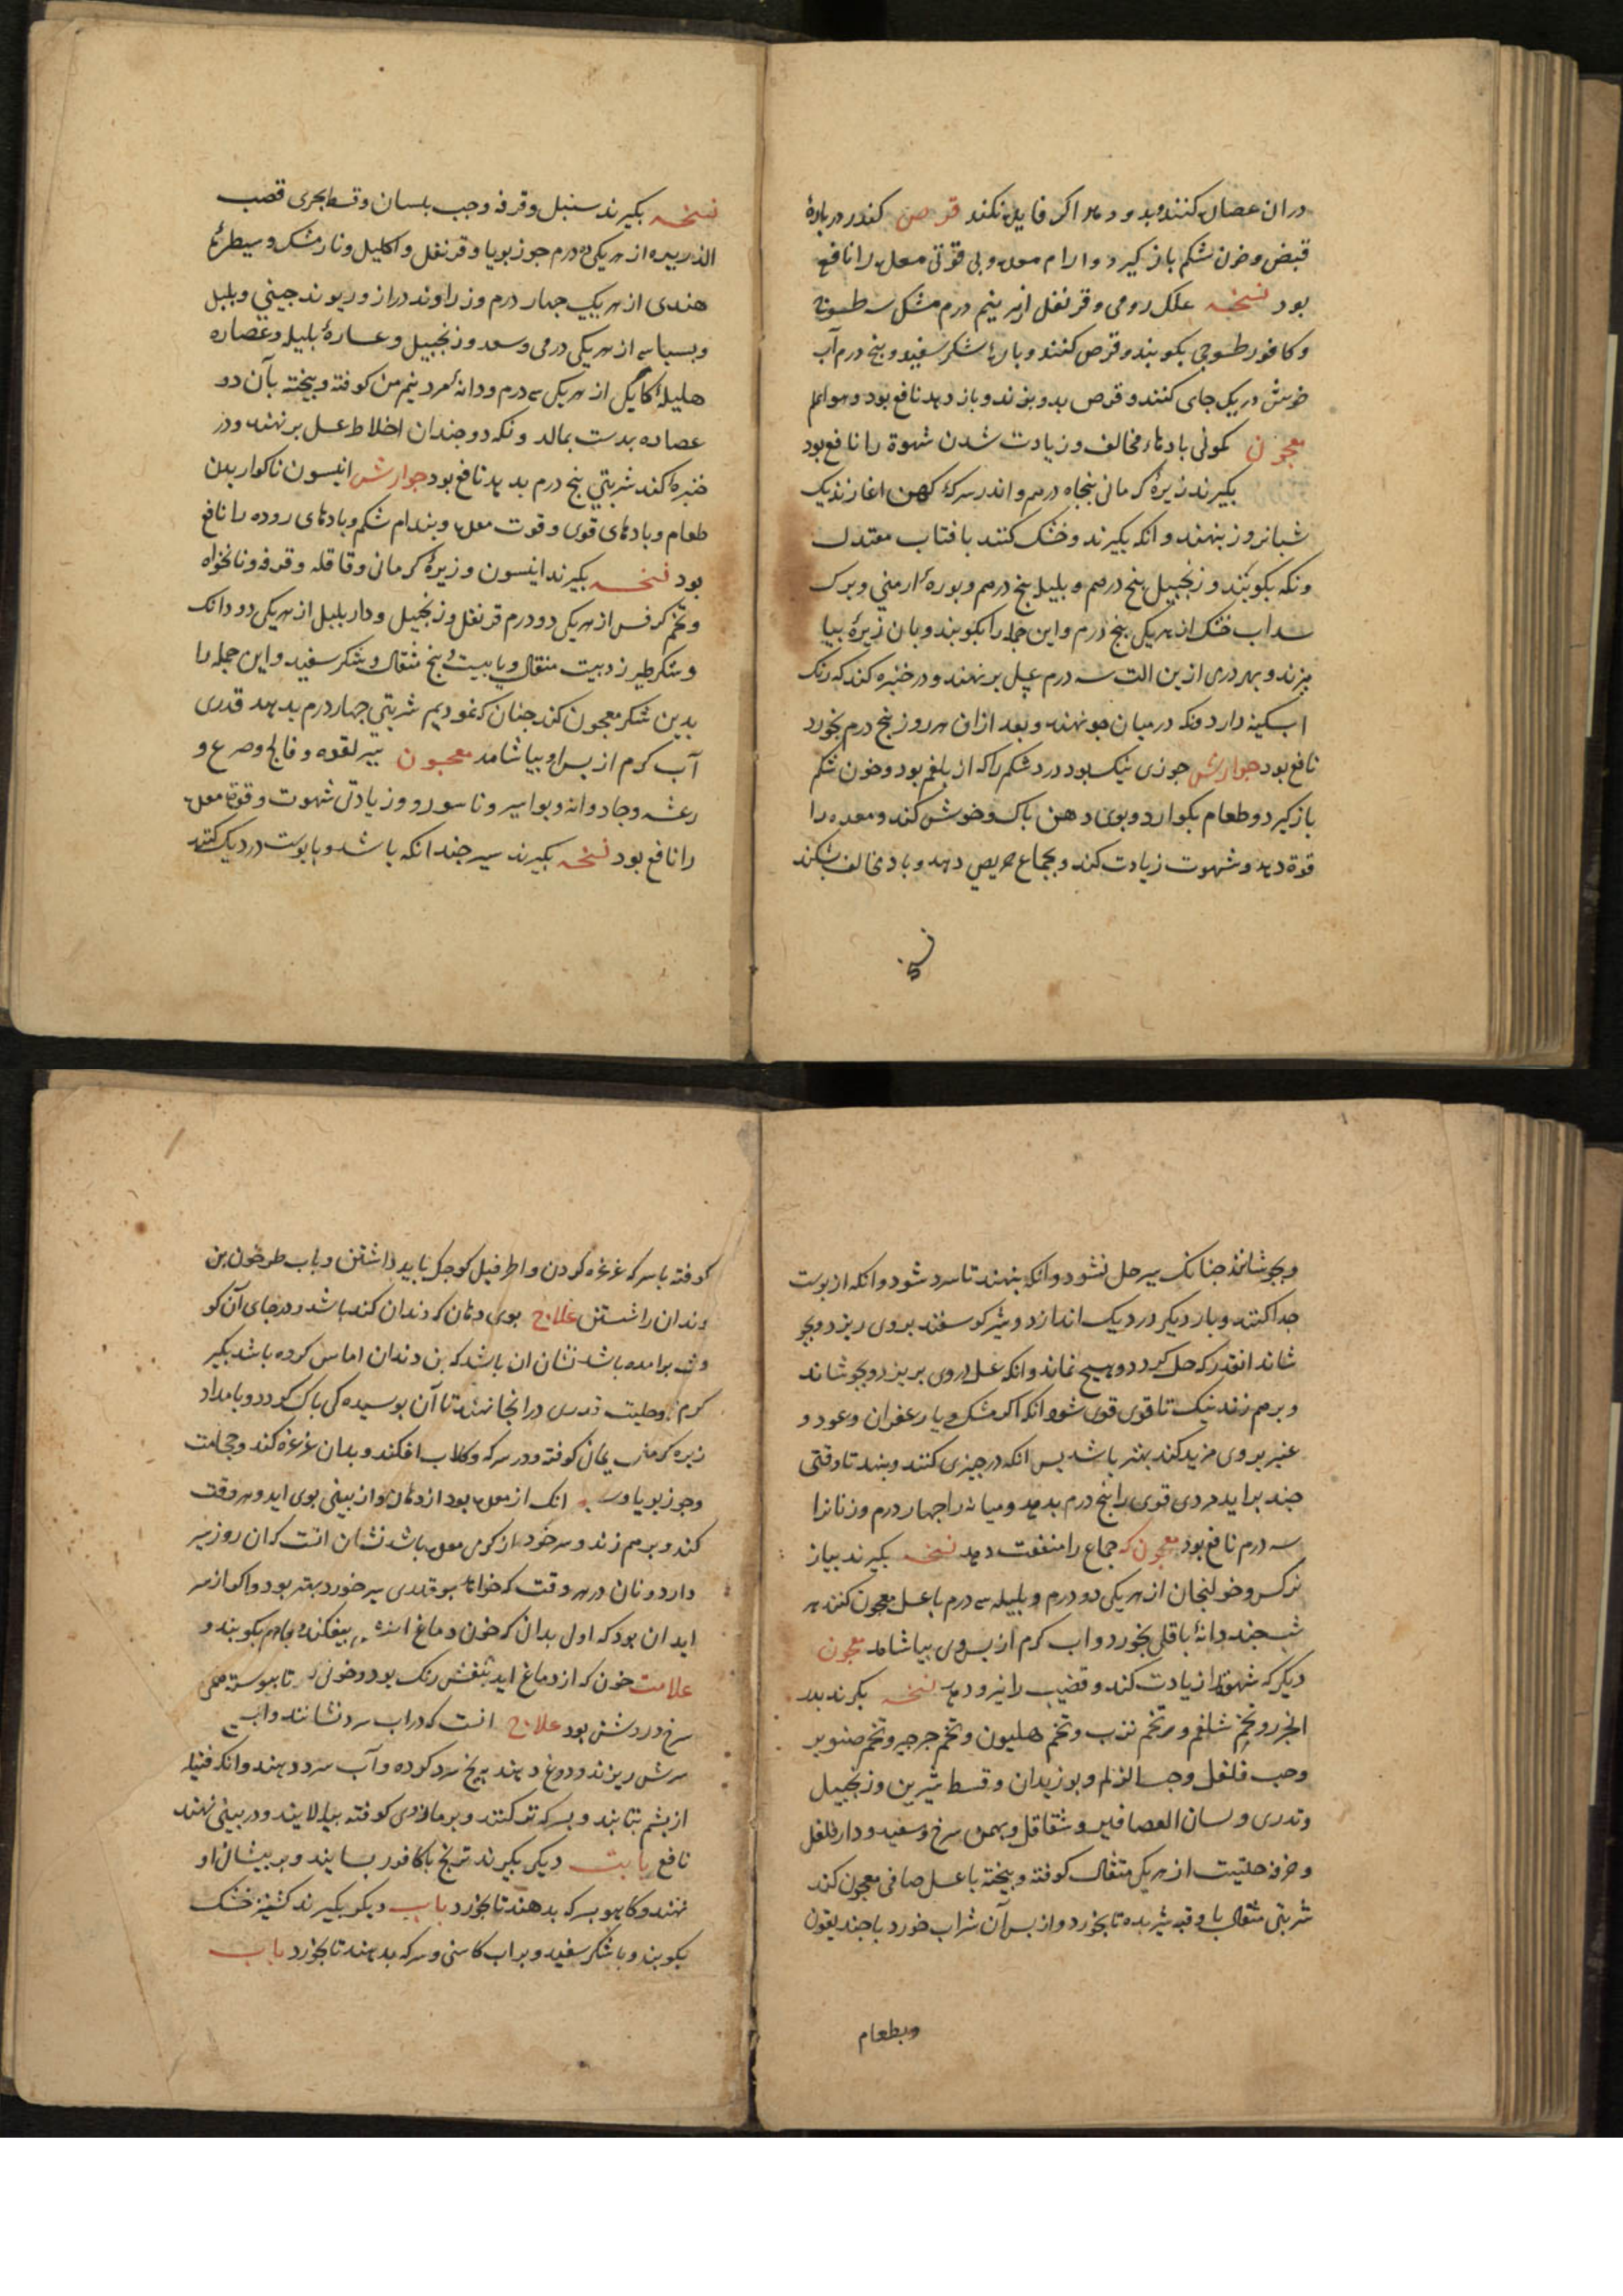 دران عصان کنند و بدو دهد اکر فایده نکند قرص کندر دربارهٔ
قبض و خون شکم باز گیرد و ارام معده و بی قوتی معده را نافع
بود نسخه علک رومی و قرنفل از هر نیم درم مشک سه طسوج
و کافور طسوجی بکوبند و قرص کنند و بارهٔ شکر سفید و بنج درم آب
خوش در یک جای کنند و قرص بدو بزند و باز دهد نافع بود و هو اعلم
معجون کمونی بادهاء مخالف و زیادت شدن شهوة را نافع بود
بکیرند زیرهٔ کرمانی بنجاه درم و اندر سرکهٔ کهن اغارند یک
شبانروز بنهند و انکه بکیرند و خشک کنند بافتاب معتدل
ونکه بکوبند و زنجبیل بنج درم و بلیل بنج درم و بورهٔ ارمنی و برک
سداب خشک از هر یکی بنج درم و این جمله را بکوبند و بان زیرهٔ بیا
میزند و بهر دری ازین الت سه درم عسل بر نهند و در خنبره کند که رنک
ابکینه دارد ونکه در میان جو نهند و بعد ازان هر روز بنج درم بخورد
نافع بود جوارش جوزی نیک بود درد شکم را که از بلغم بود و خون شکم
باز کیرد و طعام بکوارد و بوی دهن باک و خوش کند و معده را
قوة دهد و شهوت زیادت کند و بجماع حریص دهد و باد مخالف بشکند
نسخه بکیرند سنبل و قرفه و حب بلسان و قسط بحری قصب
الذریره از هر یکی ده درم جوز بویا و قرنفل و اکلیل و نارمشک و سیطرج
هندی از هر یکی جهار درم و زراوند دراز و ریوند جینی و بلبل
و بسباسه از هر یکی درمی و سعد و زنجبیل و عسارهٔ بلیله و عصاره
هلیلهٔ کابلی از هر یکی سه درم و دانهٔ مرد نیم من کوفته و بیخته بآن دو
عصاده بدست بمالد ونکه دوجندان اخلاط عسل بر نهند و در
خنبرهٔ کند شربتی بنج درم بدهد نافع بود جوارش انیسون ناکواریدن
طعام و بادهای قوی و قوت معده و بندام شکم و بادهای روده را نافع
بود نسخه بکیرند انیسون و زیرهٔ کرمانی و قاقله و قرفه و نانخواه
و تخم کرفس از هر یکی دو درم قرنفل و زنجبیل و دار بلبل از هر یکی دو دانک
و شکر طبرزد بیست مثقال و یا بیست و بنج مثقال و شکر سفید و این جمله را
بدین شکر معجون کند جنان که نمودیم شربتی جهار درم بدهد قدری
آب کرم از بس او بیاشامد معجون سیر لقوه و فالج و صرع و
رعشه و جادوانه و بواسیر و ناسور و زیادتی شهوت و قوة معده
را نافع بود نسخه بکیرند سیر جندانکه باشد و با بوست در دیک کنند
وبجوشانند جنانک سیر حل نشود وانکه بنهند تا سرد شود وانکه از بوست
جدا کنند و بار دیکر در دیک اندازد و شیر کوسفند بروی ریزد و بجو
شاند انقدر که حل کردد و هیچ نماند وانکه عسل بروی بریزد و بجوشاند
و برهم زند نیک تا قوی قوی شود انکه اکر مشک و یا زعفران و عود و
عنبر بروی مزید کند بهتر باشد بس انکه در جیزی کنند و بنهد تا وقتی
جند براید مردی قوی را بنج درم بدهد و میانه را جهار درم و زنانرا
سه درم نافع بود معجون که جماع را منفعت دهد نسخه بکیرند بیاز
نرکس و خولنجان از هر یکی دو درم و بلیله سه درم با عسل معجون کنند هر
شب جند دانهٔ باقلی بخورد و اب کرم از بس وی بیاشامد معجون
دیکر که شهوة را زیادت کند و قضیب را نیرو دهد نسخه بکیرند بذر
انجره و تخم شلغم و تخم ترب و تخم هلیون و تخم جرجیر و تخم صنوبر
و حب فلفل و حب الزلم و بوزیدان و قسط شیرین و زنجبیل
و تدری و لسان العصافیر و شقاقل و بهمن سرخ و سفید و دارفلفل
و خرفه حلتیت از هر یکی مثقال کوفته و بیخته با عسل صافی معجون کند
شربتی مثقالی با وقیه شیر بدهد تا بخورد و از بس آن شراب خورد با جند یقون
وبطعام
کوفته با سرکه غرغره کردن و اطرفیل کوجک باید داشتن و باب طرخون بن
دندان را شستن علاج بوی دهان که دندان کنده باشد و در جای آن کو
وشت برامده باشد نشان ان باشد که بن دندان اماس کرده باشد بکیر
کرم و حلیت قدری درانجا نهند تا آن بوسیده کی باک کردد و بامداد
زیره کرمانی یمانی کوفته و در سرکه و کلاب افکند و بدان غرغره کند و حجامت
و جوز بویا و انک از معده بود از دهان و از بینی بوی اید و هر وقت
کند و برهم زند و سر خود از کرمی معده باشد نشان انست که ان روز سیر
دارد و نان در هر وقت که خواهد بو قدری سیر خورد بهتر بود و اکر از سر
اید ان بود که اول بدان که خون دماغ بیفکند و باهم بکوبند و
علامت خون که از دماغ اید بنفش رنک بود و خونی تا بیوسته همی
سرخ و روشن بود علاج انست که در اب سرد نشانند و اب
سرش ریزند و دوغ دهند بیخ سرد کرده و آب سرد دهند وانکه فتیله
از بشم بتابند و بسرکه تر کنند و بر مازوی کوفته بیالایند و در بینی نهند
نافع بابت دیکر بکیرند ترنج با کافور بسایند و بر بیشانی او
نهند و کاهو بسرکه بدهند تا بخورد باب دیکر بکیرند کشنیز خشک
بکوبند و با شکر سفید و براب کاسنی و سرکه بدهند تا بخورد باب